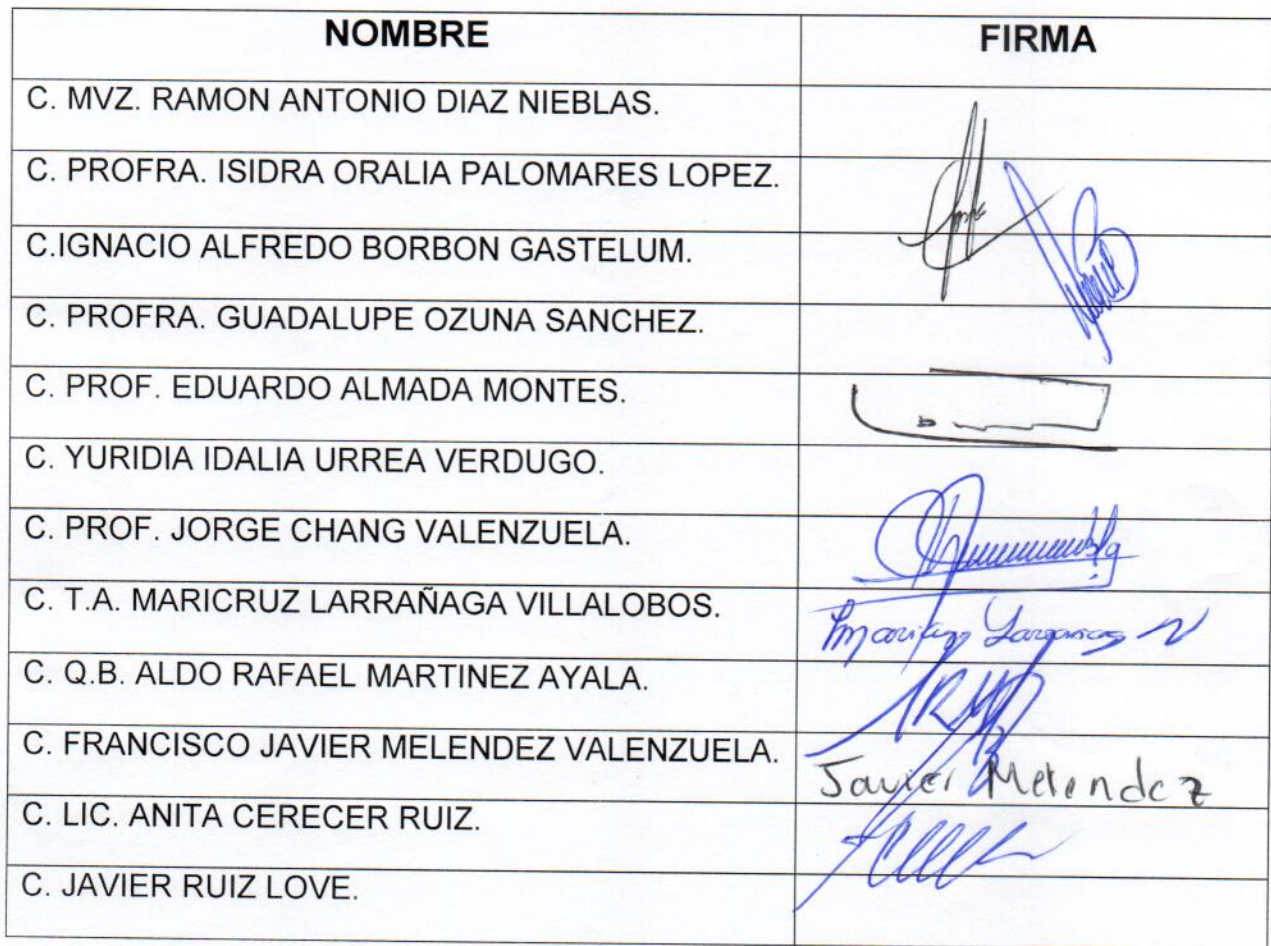 NOMBRE FIRMA
C. MVZ. RAMON ANTONIO DIAZ NIEBLAS.
C. PROFRA. ISIDRA ORALIA PALOMARES LOPEZ.
C.IGNACIO ALFREDO BORBON GASTELUM.
C. PROFRA. GUADALUPE OZUNA SANCHEZ.
C. PROF. EDUARDO ALMADA MONTES.
C. YURIDIA IDALIA URREA VERDUGO.
C. PROF. JORGE CHANG VALENZUELA.
C. T.A. MARICRUZ LARRAÑAGA VILLALOBOS.
C. Q.B. ALDO RAFAEL MARTINEZ AYALA.
C. FRANCISCO JAVIER MELENDEZ VALENZUELA. Javier Melendez
C. LIC. ANITA CERECER RUIZ.
C. JAVIER RUIZ LOVE.